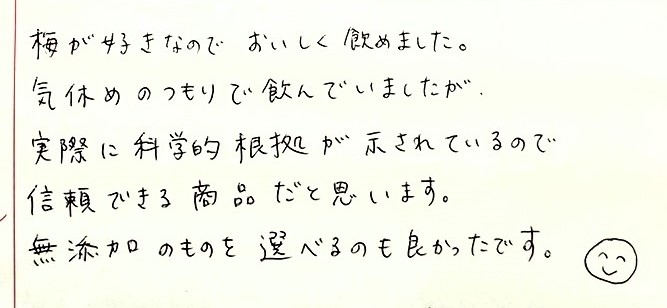 梅が好きなので おいしく飲めました。
気休めのつもりで飲んでいましたが、
実際に科学的根拠が示されているので
信頼できる商品だと思います。
無添加のものを選べるのも良かったです。